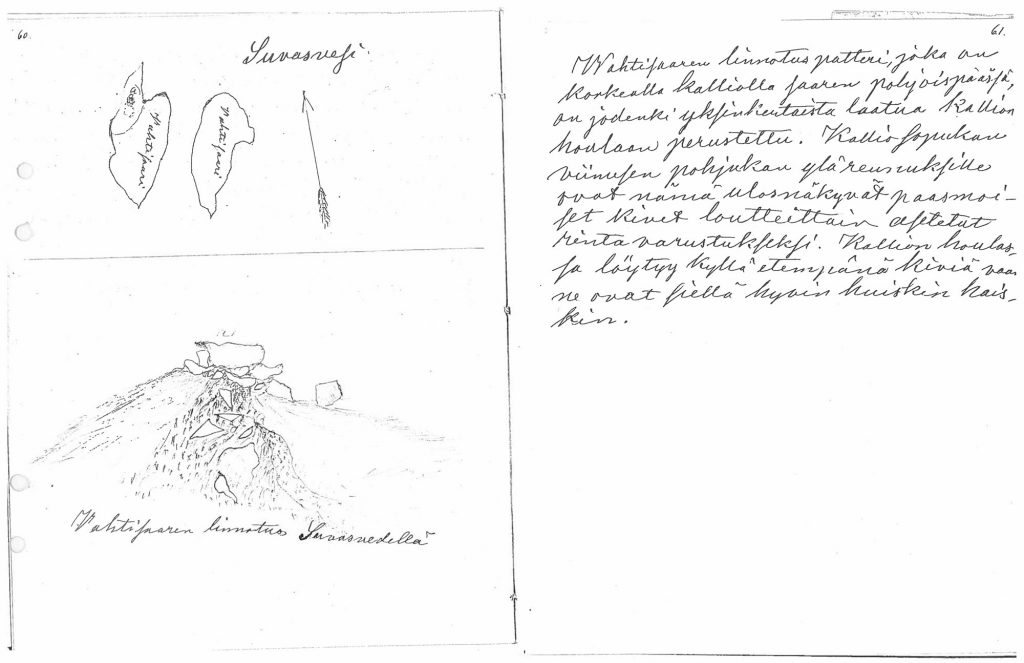 60.
Suvasvesi.
Vahtisaari
Vahtisaari
Vahtisaaren linnotus Suvasvedellä
61.
Wahtisaaren linnotus patteri, joka on
korkealla kalliolla saaren pohjoispäässä,
on jodenki yksinkertaista laatua kallion
koulaan perustettu. Kallio sopukan
viimesen pohjukan ylä reunuksille
ovat nämä ulosnäkyvät paasmoi-
set kivet loutteittain asetetut
rinta varustukseksi. Kallion koulas-
sa löytyy kyllä etempänä kiviä vaan
ne ovat siellä hyvin huiskin hais-
kin.